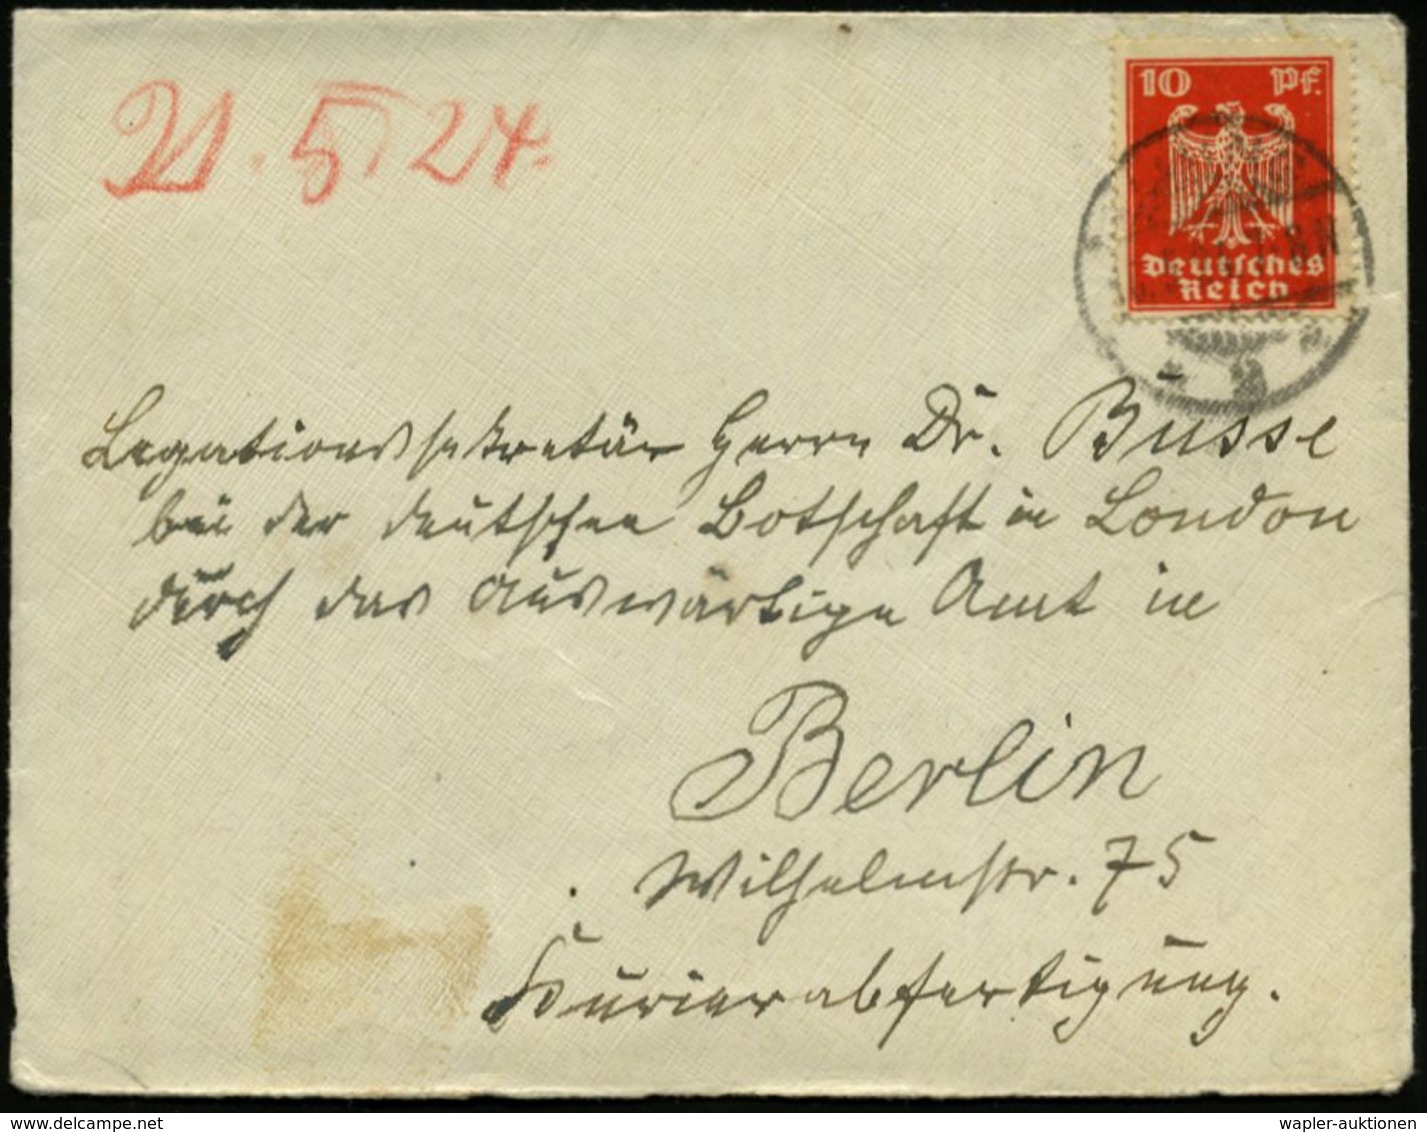 21. 5. 24.
10 Pf.
Deutsches
Reich
Legationssekretär Herrn Dr. Busse
bei der deutschen Botschaft in London
durch das Auswärtige Amt in
Berlin
Wilhelmstr. 75
Kurierabfertigung.
wapler-auktionen